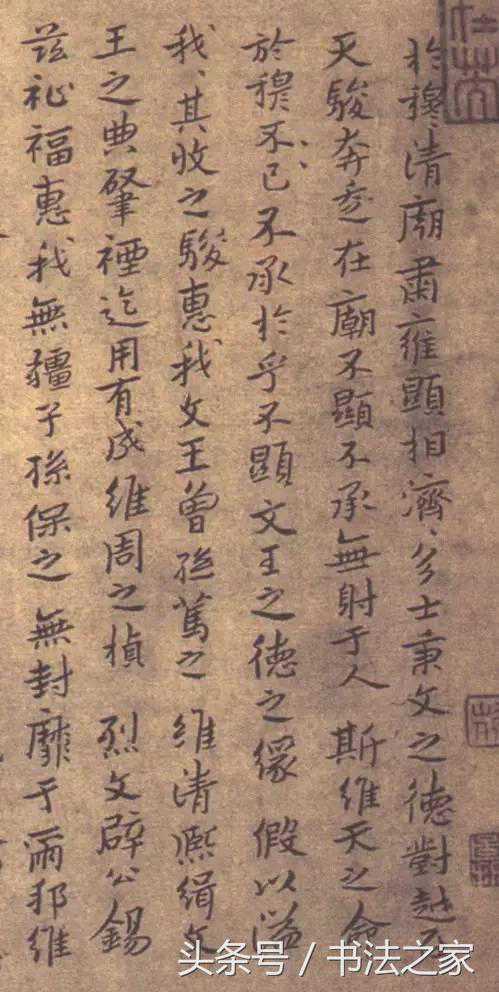 於穆、清廟肅雍顯相濟、多士秉文之德對越在
天駿奔走在廟不顯不承無射于人 斯維天之命
於穆不已不承於乎不顯文王之德之純 假以溢
我、其收之駿惠我文王曾孫篤之 維清熙緝文
王之典肇禋迄用有成維周之楨 烈文辟公錫
茲祉福惠我無疆子孫保之 無封靡于爾邦維
头条号／书法之家